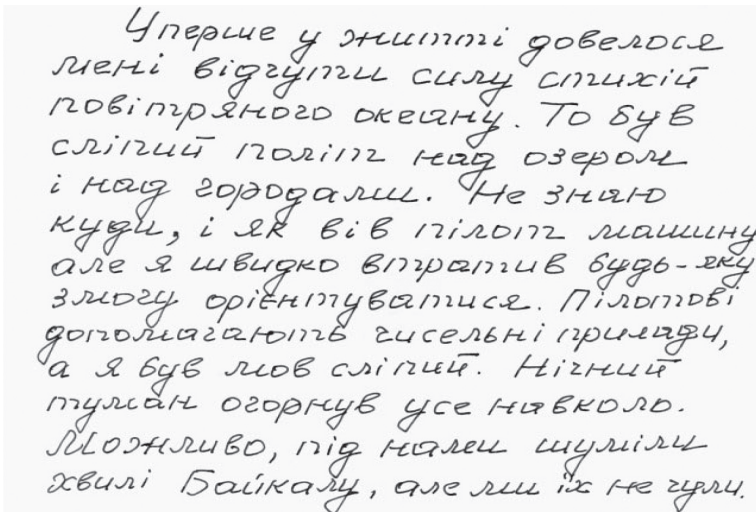 Уперше у житті довелося
мені відчути силу стихій
повітряного океану. То був
сліпий політ над озером
і над городами. Не знаю
куди, і як вів пілот машину
але я швидко втратив будь-яку
змогу орієнтуватися. Пілотові
допомагають чисельні прилади,
а я був мов сліпий. Нічний
туман огорнув усе навколо.
Можливо, під нами шуміли
хвилі Байкалу, але ми їх не чули.